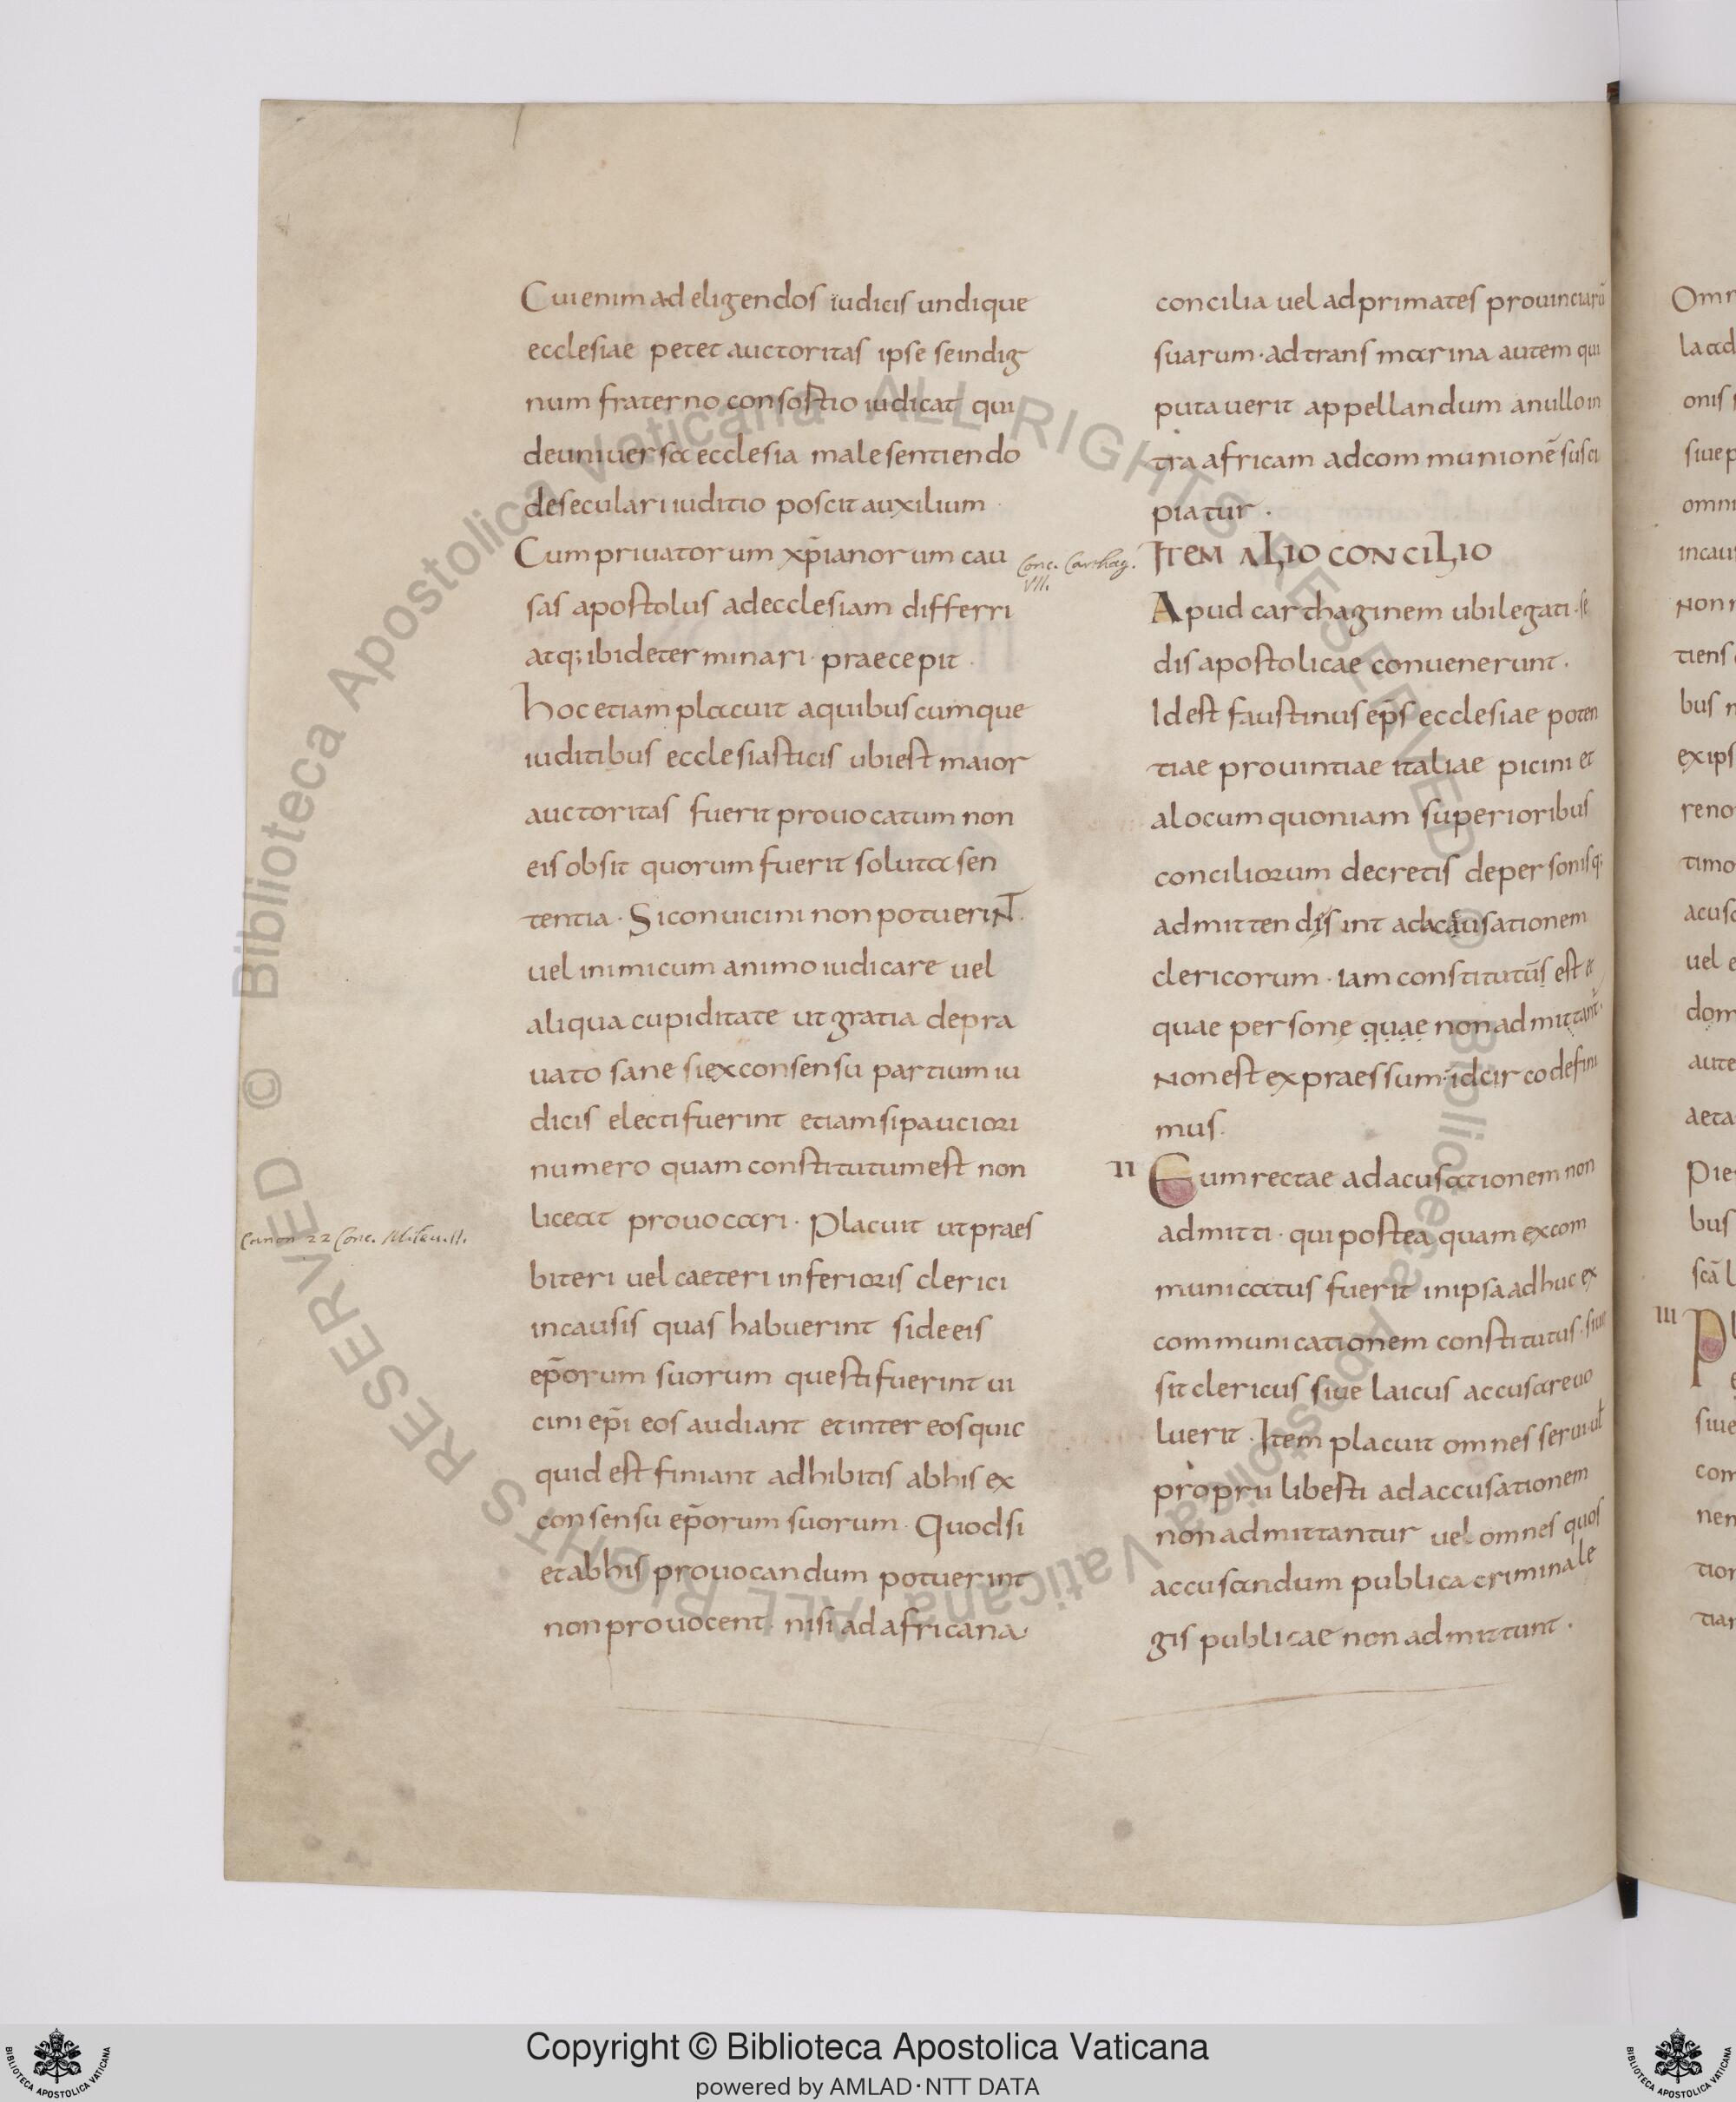 Cui enim ad eligendos iudicis undique
ecclesiae petet auctoritas ipse se indig
num fraterno consostio iudicat qui
de universa ecclesia male sentiendo
de seculari iuditio poscit auxilium
Cum priuatorum xp̄ianorum cau
sas apostolus ad ecclesiam differri
atq; ibi determinari · praecepit ·
Hoc etiam placuit a quibuscumque
iuditibus ecclesiasticis ubi est maior
auctoritas fuerit prouocatum non
eis obsit quorum fuerit soluta sen
tentia · Si conuicini non potuerint ·
uel inimicum animo iudicare uel
aliqua cupiditate ut gratia depra
uato sane si ex consensu partium iu
dicis electi fuerint etiam si pauciori
numero quam constitutum est non
liceat prouocari · Placuit ut praes
biteri uel caeteri inferioris clerici
in causis quas habuerint si de eis
ep̄orum suorum questi fuerint ui
cini ep̄i eos audiant et inter eos quic
quid est finiant adhibitis ab his ex
consensu ep̄orum suorum · Quod si
et ab his prouocandum potuerint
non prouocent · nisi ad africana
Conc. Carthag.
VII.
Canon 22 Conc. Mileuit.
concilia uel ad primates prouinciarū
suarum · ad transmarina autem qui
putauerit appellandum a nullo in
tra africam ad communionē susci
piatur ·
ITEM ALIO CONCILIO
Apud carthaginem ubi legati · se
dis apostolicae conuenerunt ·
Id est faustinus ep̄s ecclesiae poten
tiae prouintiae italiae picini et
a locum quoniam superioribus
conciliorum decretis de personis q;
admittendis sint ad accausationem
clericorum · iam constitutūs est et
quae persone quae non admittant ·
Non est expraessum · idcirco defini
mus ·
II Cum rectae ad acusationem non
admitti · qui postea quam excom
municatus fuerit in ipsa adhuc ex
communicationem constitutus · siue
sit clericus siue laicus accusare uo
luerit · Item placuit omnes serui · ut
proprii libesti ad accusationem
non admittantur uel omnes quos
accusandum publica criminale
gis publicae non admittunt ·
Omn
la ad
onis
siue p
omni
in cau
Non
tiens
bus n
ex ips
reno
timo
acusa
uel e
dom
aute
aeta
pie
bus
scā l
III P
siue
com
nem
tion
tiar
© Biblioteca Apostolica Vaticana ALL RIGHTS RESERVED © Biblioteca Apostolica Vaticana ALL RIGHTS RESERVED
Copyright © Biblioteca Apostolica Vaticana
powered by AMLAD·NTT DATA
BIBLIOTECA APOSTOLICA VATICANA
BIBLIOTECA APOSTOLICA VATICANA